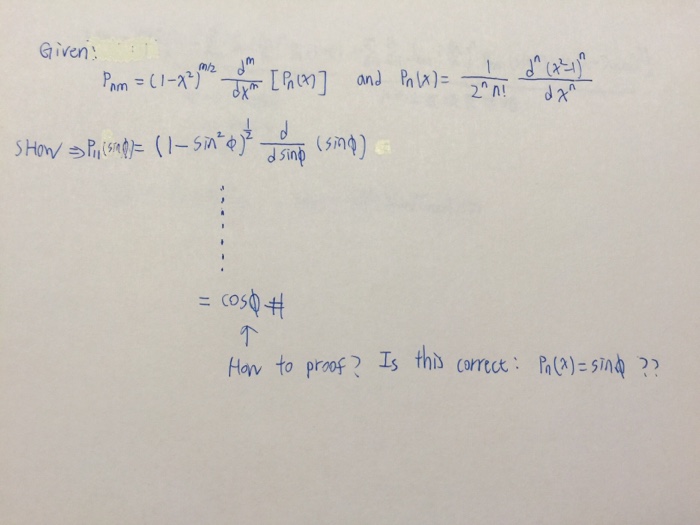 Given:
Pnm = (1-x²)^m/2 d^m/dx^m [Pn(x)] and Pn(x) = 1/2^n n! d^n (x²-1)^n/dx^n
SHOW ⇒ P11(sinϕ) = (1-sin²ϕ)^1/2 d/dsinϕ (sinϕ)
= cosϕ #
↑
How to proof? Is this correct: Pn(x) = sinϕ ??